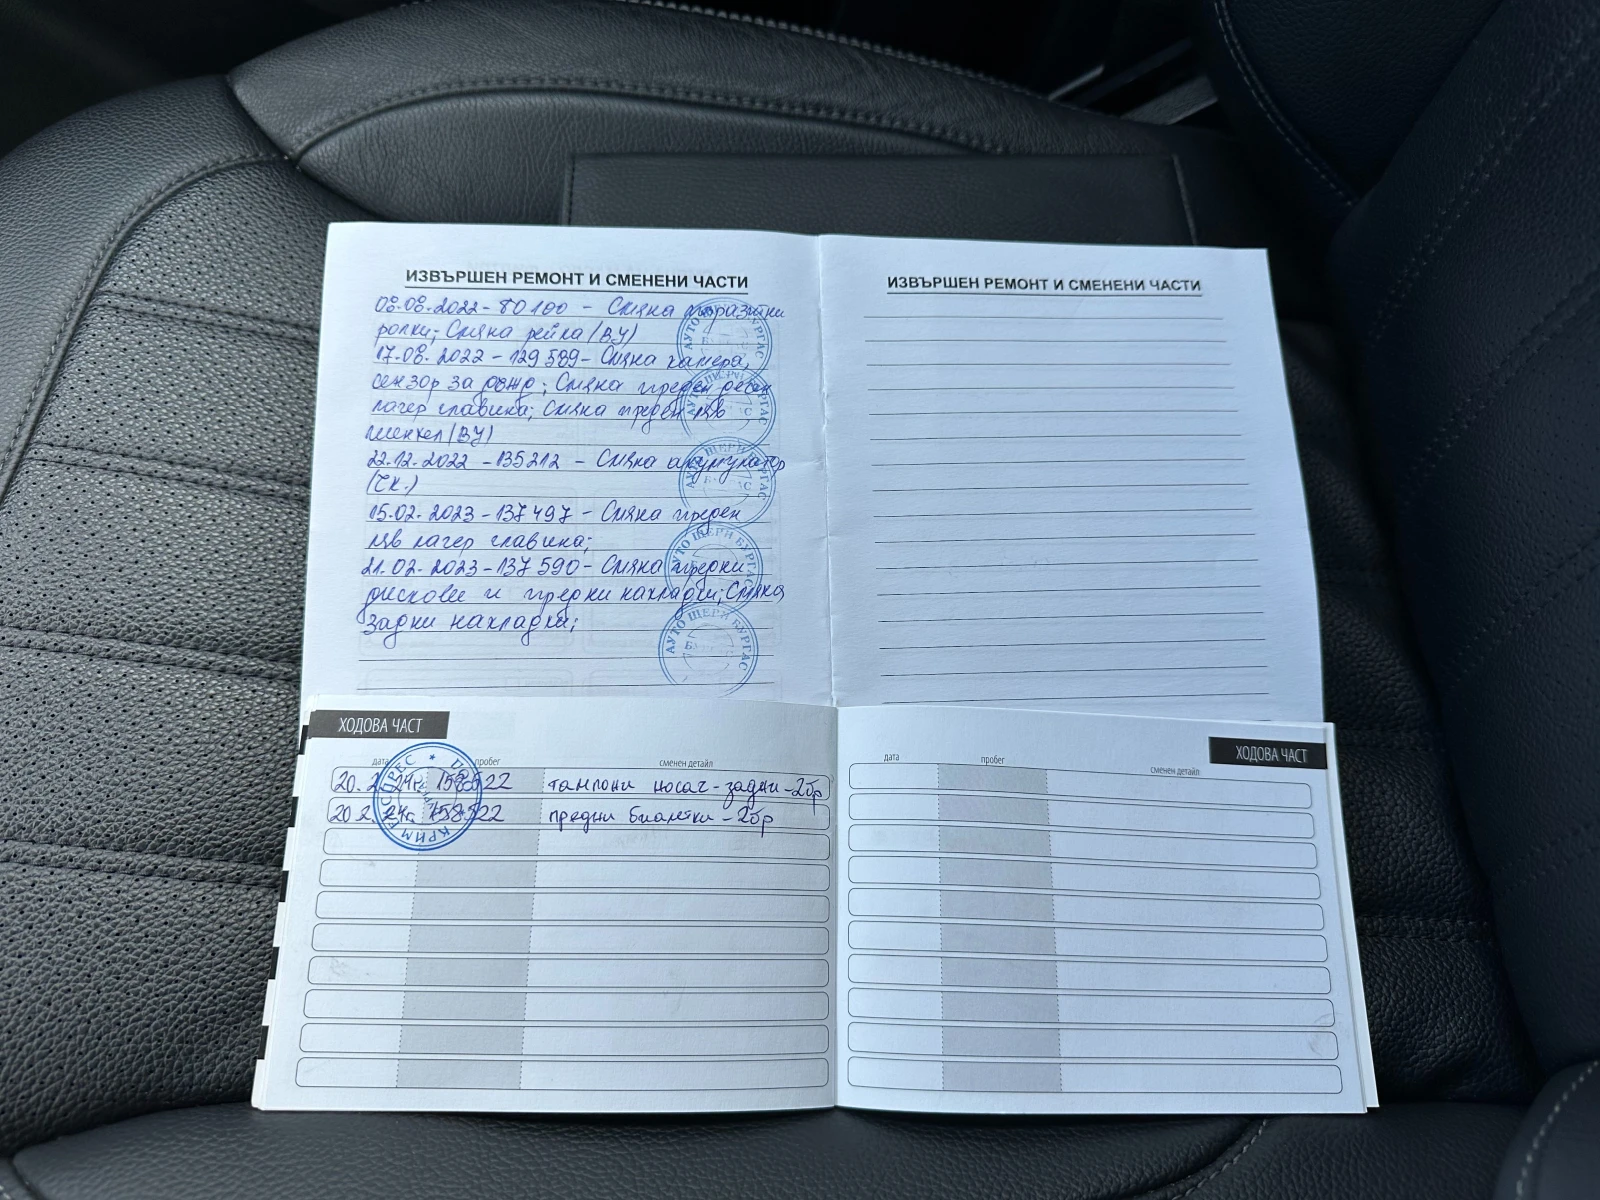 ИЗВЪРШЕН РЕМОНТ И СМЕНЕНИ ЧАСТИ
08.08.2022 - 80 100 - Смяна паразитни
ролки; Смяна рейка (ВУ)
17.08.2022 - 129 589 - Смяна камера,
сензор за дъжд; Смяна преден десен
лагер главина; Смяна преден ляв
шенкел (ВУ)
22.12.2022 - 135212 - Смяна акумулатор
15.02.2023 - 137 497 - Смяна преден
ляв лагер главина;
21.02.2023 - 137 590 - Смяна предни
дискове и предни накладки; Смяна
задни накладки;
АУТО ЩЕРН БУРГАС
АУТО ЩЕРН БУРГАС
АУТО ЩЕРН БУРГАС
АУТО ЩЕРН БУРГАС
АУТО ЩЕРН БУРГАС
ИЗВЪРШЕН РЕМОНТ И СМЕНЕНИ ЧАСТИ
ХОДОВА ЧАСТ
дата пробег сменен детайл
20.2.24г 158522 тампони носач - задни - 2бр
20.2.24г 158522 предни биалетки - 2бр
ХОДОВА ЧАСТ
дата пробег сменен детайл